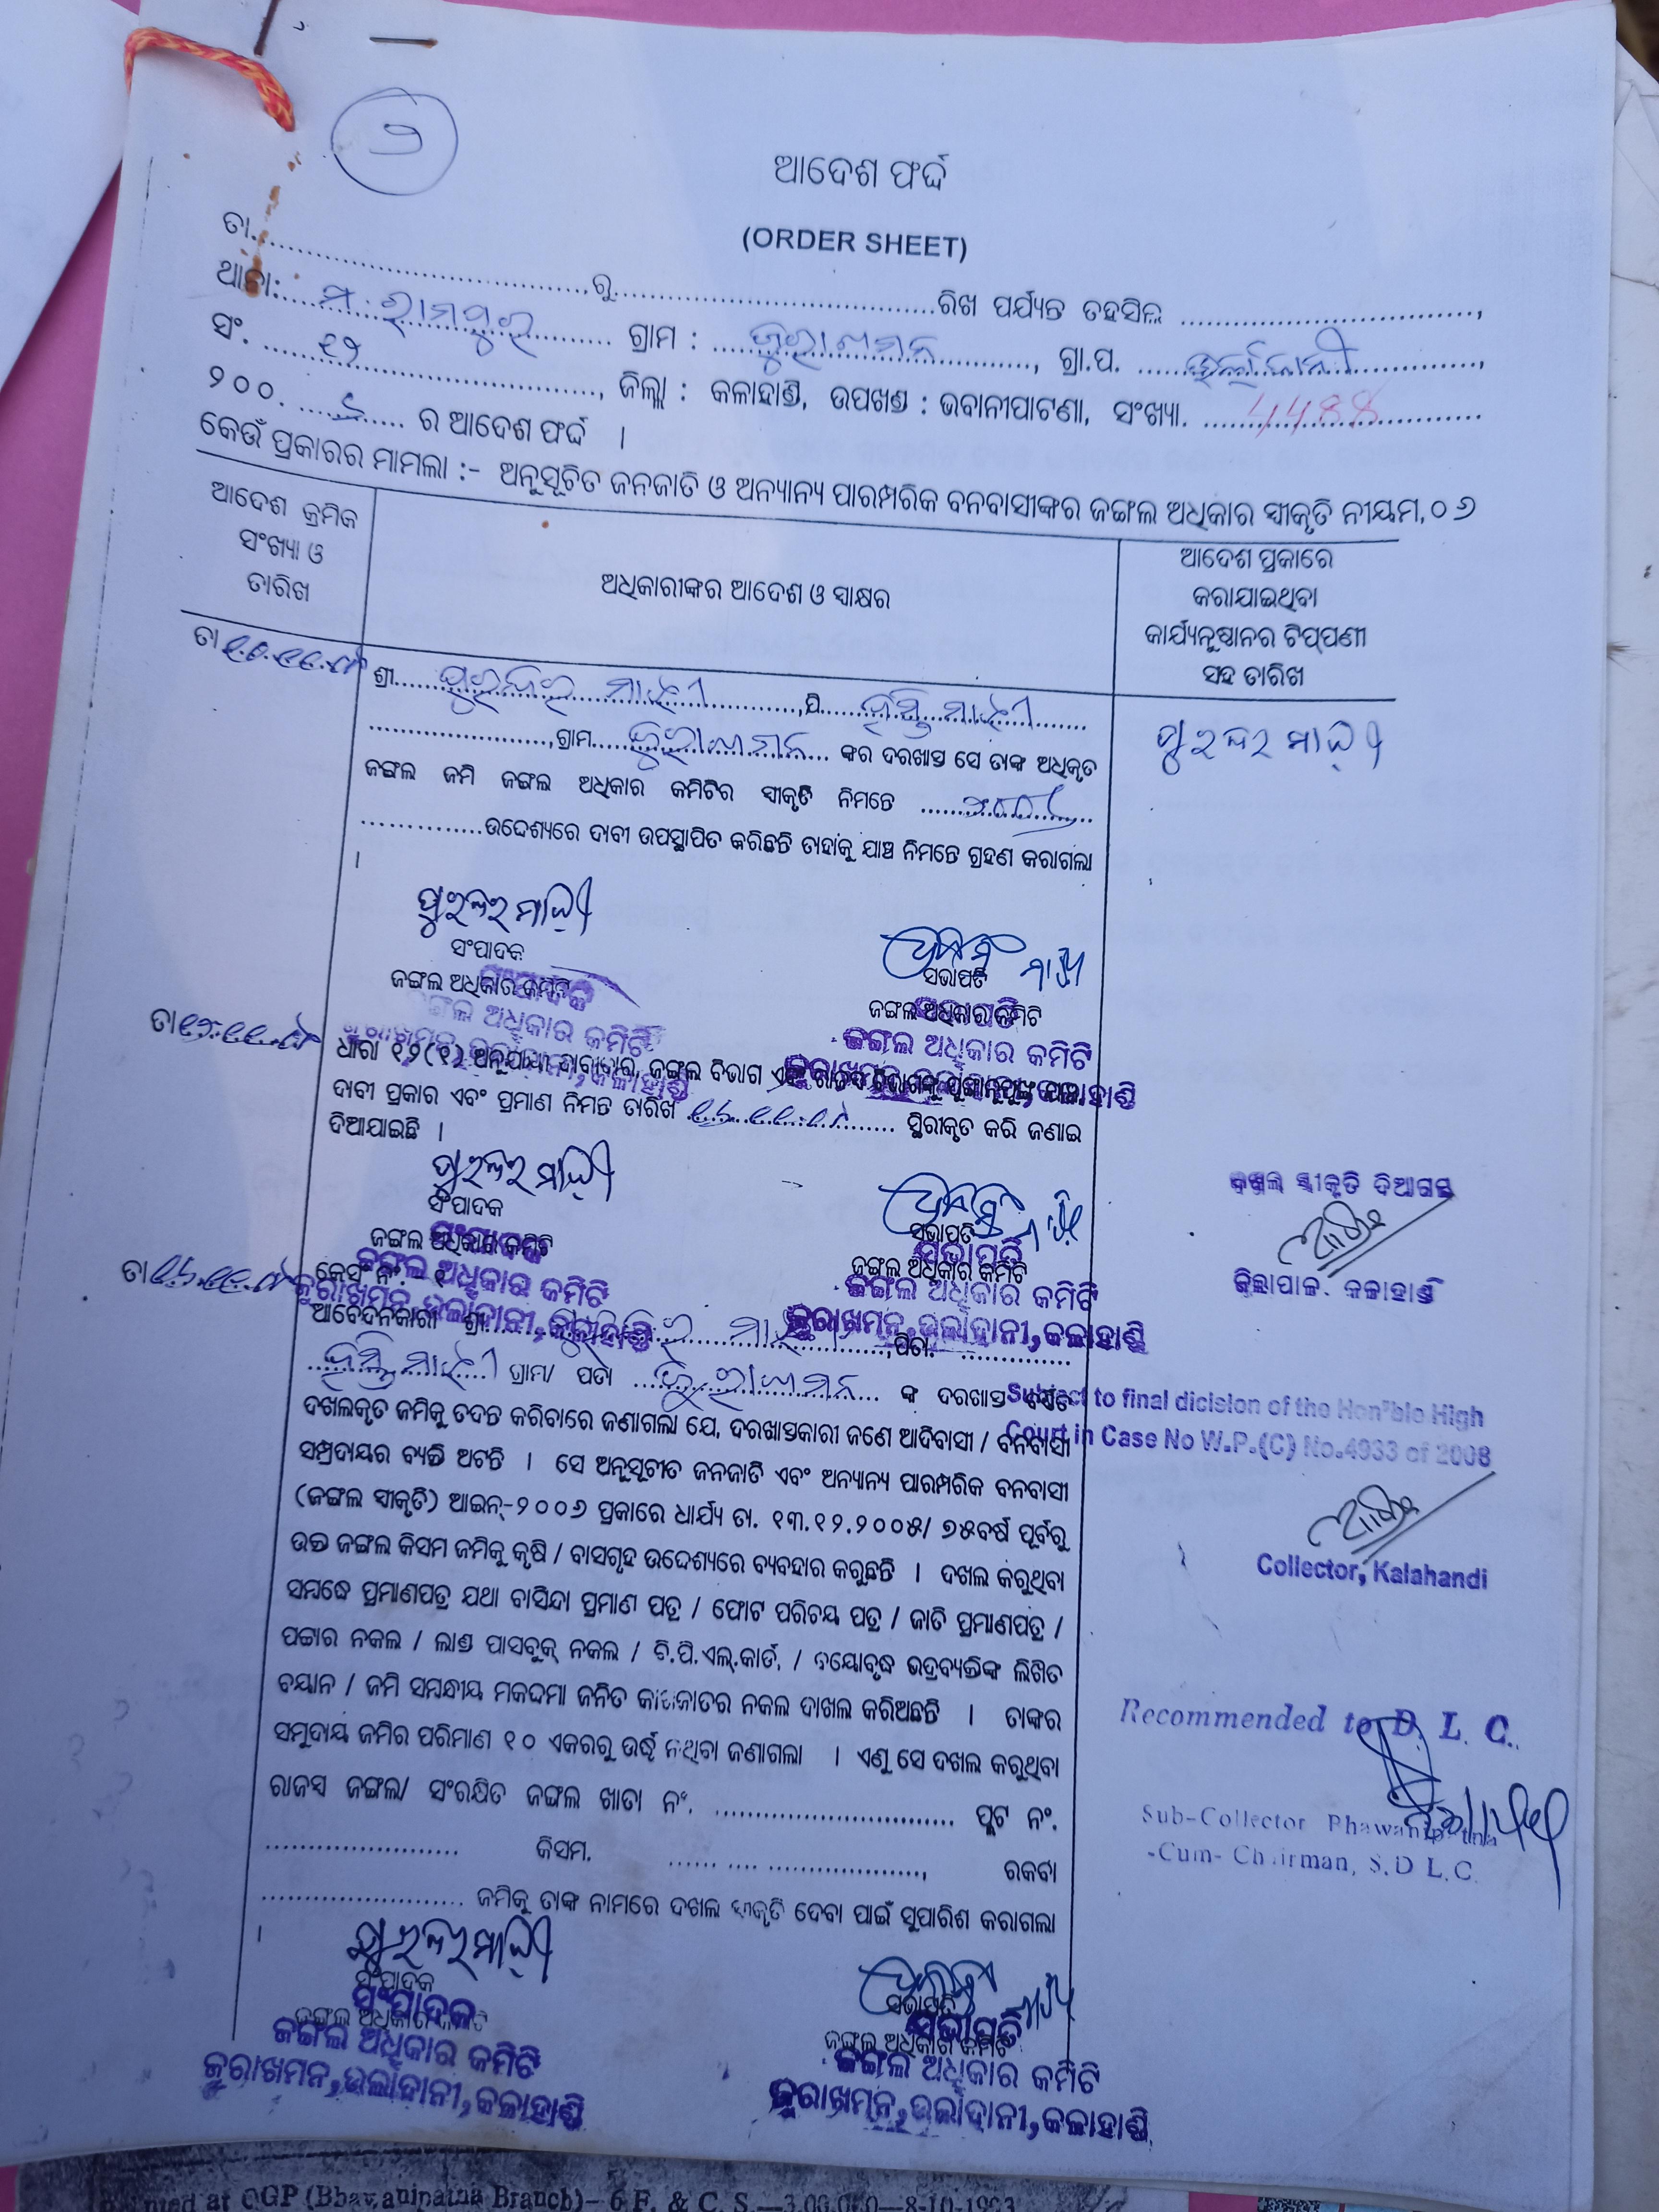 ୨
ଆଦେଶ ଫର୍ଦ୍ଦ
(ORDER SHEET)
ତା..................................ରୁ..................................ରିଖ ପର୍ଯ୍ୟନ୍ତ ତହସିଲ ................................,
ଥାନା: ମ. ରାମପୁର ଗ୍ରାମ : ଜୁରାଖମନ, ଗ୍ରା.ପ. ..............,
ସଂ. ୧୨, ଜିଲ୍ଲା : କଳାହାଣ୍ଡି, ଉପଖଣ୍ଡ : ଭବାନୀପାଟଣା, ସଂଖ୍ୟା. ..............
୨୦୦. ........ ର ଆଦେଶ ଫର୍ଦ୍ଦ ।
କେଉଁ ପ୍ରକାରର ମାମଲା :- ଅନୁସୂଚିତ ଜନଜାତି ଓ ଅନ୍ୟାନ୍ୟ ପାରମ୍ପରିକ ବନବାସୀଙ୍କର ଜଙ୍ଗଲ ଅଧିକାର ସ୍ୱୀକୃତି ନୀୟମ,୦୬
ଆଦେଶ କ୍ରମିକ
ସଂଖ୍ୟା ଓ
ତାରିଖ
ଅଧିକାରୀଙ୍କର ଆଦେଶ ଓ ସ୍ୱାକ୍ଷର
ଆଦେଶ ପ୍ରକାରେ
କରାଯାଇଥିବା
କାର୍ଯ୍ୟନୁଷ୍ଠାନର ଟିପ୍ପଣୀ
ସହ ତାରିଖ
ତା
ଶ୍ରୀ ପୁରନ୍ଦର ମାଝୀ ,ପି. ........ ମାଝୀ
......................,ଗ୍ରାମ ଜୁରାଖମନ ଙ୍କର ଦରଖାସ୍ତ ସେ ତାଙ୍କ ଅଧିକୃତ
ଜଙ୍ଗଲ ଜମି ଜଙ୍ଗଲ ଅଧିକାର କମିଟିର ସ୍ୱୀକୃତି ନିମନ୍ତେ ..............
..............ଉଦ୍ଦେଶ୍ୟରେ ଦାବୀ ଉପସ୍ଥାପିତ କରିଛନ୍ତି ତାହାକୁ ଯାଞ୍ଚ ନିମନ୍ତେ ଗ୍ରହଣ କରାଗଲା
।
ପୁରନ୍ଦର ମାଝୀ
ପୁରନ୍ଦର ମାଝୀ
ସଂପାଦକ
ଜଙ୍ଗଲ ଅଧିକାର କମିଟି
ଜଙ୍ଗଲ ଅଧିକାର କମିଟି
ସଭାପତି
ଜଙ୍ଗଲ ଅଧିକାର କମିଟି
ଜଙ୍ଗଲ ଅଧିକାର କମିଟି
ତା
ଧାରା ୧୨(୧) ଅନୁଯାୟୀ ଦାବୀଦାର, ଜଙ୍ଗଲ ବିଭାଗ
ଦାବୀ ପ୍ରକାର ଏବଂ ପ୍ରମାଣ ନିମନ୍ତ ତାରିଖ .................. ସ୍ଥିରୀକୃତ କରି ଜଣାଇ
ଦିଆଯାଇଛି ।
ପୁରନ୍ଦର ମାଝୀ
ସଂପାଦକ
ଜଙ୍ଗଲ ଅଧିକାର କମିଟି
ଜଙ୍ଗଲ ଅଧିକାର କମିଟି
ସଭାପତି
ସଭାପତି
ଜଙ୍ଗଲ ଅଧିକାର କମିଟି
ଜଙ୍ଗଲ ଅଧିକାର କମିଟି
ଜୁରାଖମନ,ଉର୍ଲାଦାନୀ,କଳାହାଣ୍ଡି
ଦଖଲ ସ୍ୱୀକୃତି ଦିଆଗଲା
ଜିଲ୍ଲାପାଳ. କଳାହାଣ୍ଡି
ତା
କେସ୍ ନଂ. - ୧
ଆବେଦନକାରୀ ଶ୍ରୀ ପୁରନ୍ଦର ମାଝୀ ,ପିତା. ..............
........ ମାଝୀ ଗ୍ରାମ/ ପଡା ଜୁରାଖମନ ଙ୍କ ଦରଖାସ୍ତ ବର୍ଣ୍ଣିତ
ଦଖଲକୃତ ଜମିକୁ ତଦନ୍ତ କରିବାରେ ଜଣାଗଲା ଯେ, ଦରଖାସ୍ତକାରୀ ଜଣେ ଆଦିବାସୀ / ବନବାସୀ
ସମ୍ପ୍ରଦାୟର ବ୍ୟକ୍ତି ଅଟନ୍ତି । ସେ ଅନୁସୂଚୀତ ଜନଜାତି ଏବଂ ଅନ୍ୟାନ୍ୟ ପାରମ୍ପରିକ ବନବାସୀ
(ଜଙ୍ଗଲ ସ୍ୱୀକୃତି) ଆଇନ୍-୨୦୦୬ ପ୍ରକାରେ ଧାର୍ଯ୍ୟ ତା. ୧୩.୧୨.୨୦୦୫/ ୭୫ବର୍ଷ ପୂର୍ବରୁ
ଉକ୍ତ ଜଙ୍ଗଲ କିସମ ଜମିକୁ କୃଷି / ବାସଗୃହ ଉଦ୍ଦେଶ୍ୟରେ ବ୍ୟବହାର କରୁଛନ୍ତି । ଦଖଲ କରୁଥିବା
ସମ୍ବନ୍ଧେ ପ୍ରମାଣପତ୍ର ଯଥା ବାସିନ୍ଦା ପ୍ରମାଣ ପତ୍ର / ଫୋଟ ପରିଚୟ ପତ୍ର / ଜାତି ପ୍ରମାଣପତ୍ର /
ପଟ୍ଟାର ନକଲ / ଲାଣ୍ଡ ପାସବୁକ୍ ନକଲ / ବି.ପି.ଏଲ୍.କାର୍ଡ. / ବୟୋବୃଦ୍ଧ ଭଦ୍ରବ୍ୟକ୍ତିଙ୍କ ଲିଖିତ
ବୟାନ / ଜମି ସମ୍ବନ୍ଧୀୟ ମକଦ୍ଦମା ଜନିତ କାଗଜାତର ନକଲ ଦାଖଲ କରିଅଛନ୍ତି । ତାଙ୍କର
ସମୁଦାୟ ଜମିର ପରିମାଣ ୧୦ ଏକରରୁ ଉର୍ଦ୍ଧ୍ୱ ନଥିବା ଜଣାଗଲା । ଏଣୁ ସେ ଦଖଲ କରୁଥିବା
ରାଜସ ଜଙ୍ଗଲ/ ସଂରକ୍ଷିତ ଜଙ୍ଗଲ ଖାତା ନଂ. .............................. ପ୍ଲଟ ନଂ.
........................ କିସମ. ...... .... ...................., ରକବା
......................... ଜମିକୁ ତାଙ୍କ ନାମରେ ଦଖଲ ସ୍ୱୀକୃତି ଦେବା ପାଇଁ ସୁପାରିଶ କରାଗଲା
।
Subject to final dicision of the Hon'ble High
Court in Case No W.P.(C) No.4933 of 2008
Collector, Kalahandi
Recommended to D. L. C.
Sub-Collector Bhawanipatna
-Cum- Chairman, S.D L.C.
ପୁରନ୍ଦର ମାଝୀ
ସଂପାଦକ
ସଂପାଦକ
ଜଙ୍ଗଲ ଅଧିକାର କମିଟି
ଜଙ୍ଗଲ ଅଧିକାର କମିଟି
ଜୁରାଖମନ,ଉର୍ଲାଦାନୀ,କଳାହାଣ୍ଡି
ସଭାପତି
ସଭାପତି
ଜଙ୍ଗଲ ଅଧିକାର କମିଟି
ଜଙ୍ଗଲ ଅଧିକାର କମିଟି
ଜୁରାଖମନ,ଉର୍ଲାଦାନୀ,କଳାହାଣ୍ଡି
at OGP (Bhawanipatna Branch)— 6 F. & C. S.—3,00,000—8-10-1993